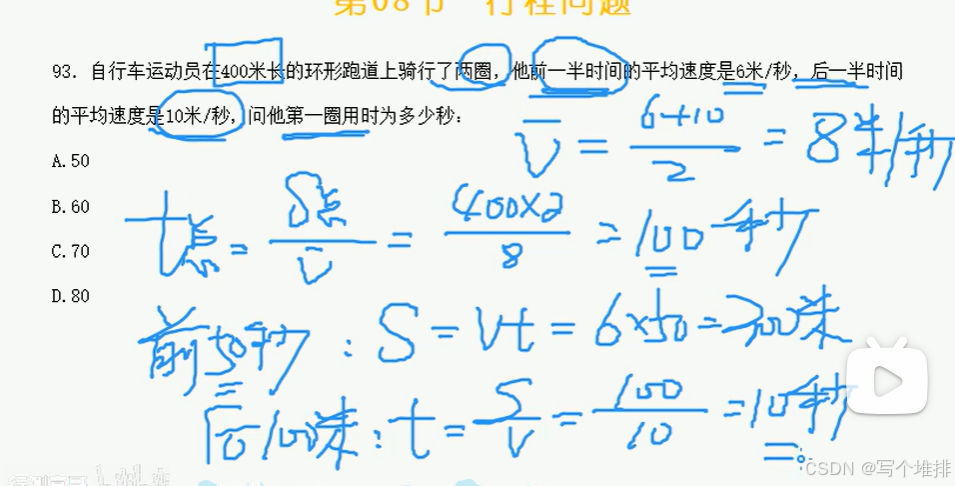 第08节 行程问题
93. 自行车运动员在400米长的环形跑道上骑行了两圈，他前一半时间的平均速度是6米/秒，后一半时间
的平均速度是10米/秒，问他第一圈用时为多少秒：
V̄ = (6+10)/2 = 8米/秒
A.50
B.60
t总 = S总/V̄ = 400×2/8 = 100秒
C.70
D.80
前50秒：S = Vt = 6×50 = 300米
后100米：t = S/V = 100/10 = 10秒
CSDN @写个堆排